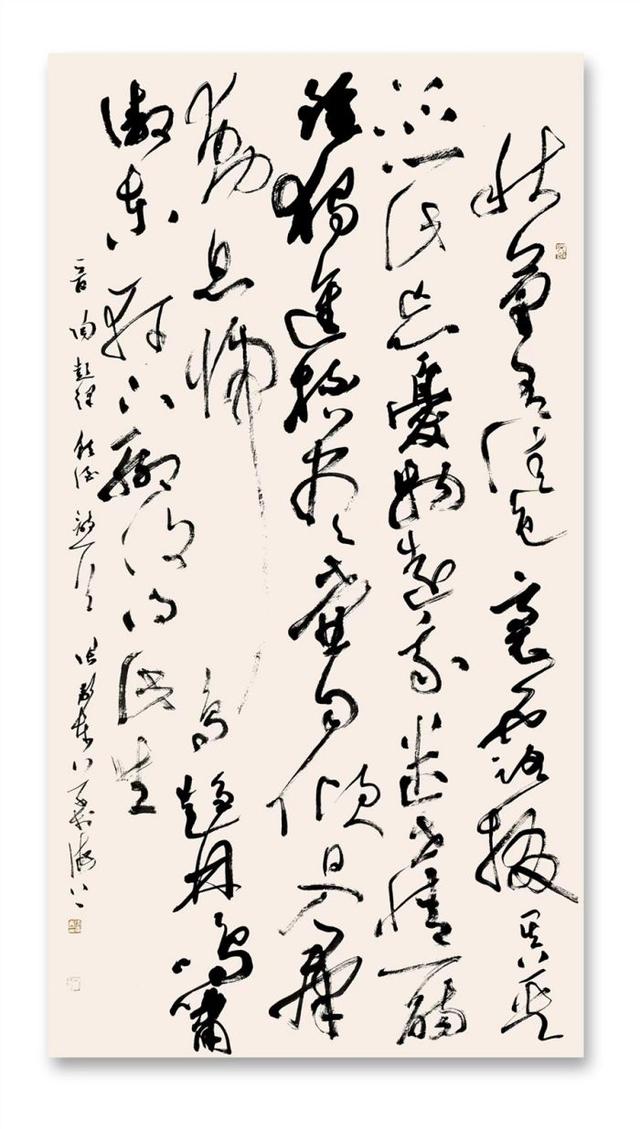 秋菊有佳色裛露掇其英
泛此忘憂物遠我遺世情一觴
雖獨進杯盡壺自傾日入群
動息歸鳥趨林鳴嘯
傲東軒下聊復得此生
晉陶彭澤飲酒詩